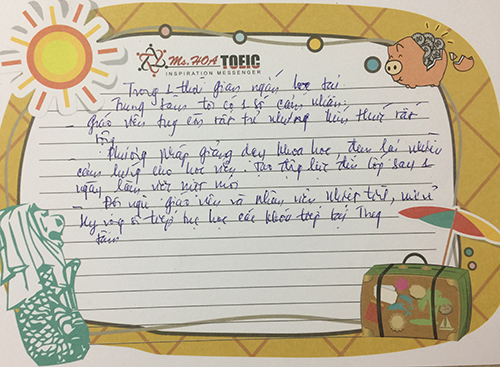 Ms. HOA TOEIC
INSPIRATION MESSENGER
Trong 1 thời gian ngắn học tại
Trung tâm tôi có 1 số cảm nhận
- Giáo viên tuy còn rất trẻ nhưng kiến thức rất
rộng
- Phương pháp giảng dạy khoa học, đem lại nhiều
cảm hứng cho học viên. Tạo động lực đến lớp sau 1
ngày làm việc mệt mỏi
- Đội ngũ giáo viên và nhân viên nhiệt tình,
Hy vọng sẽ tiếp tục học các khóa tiếp tại Trung
tâm